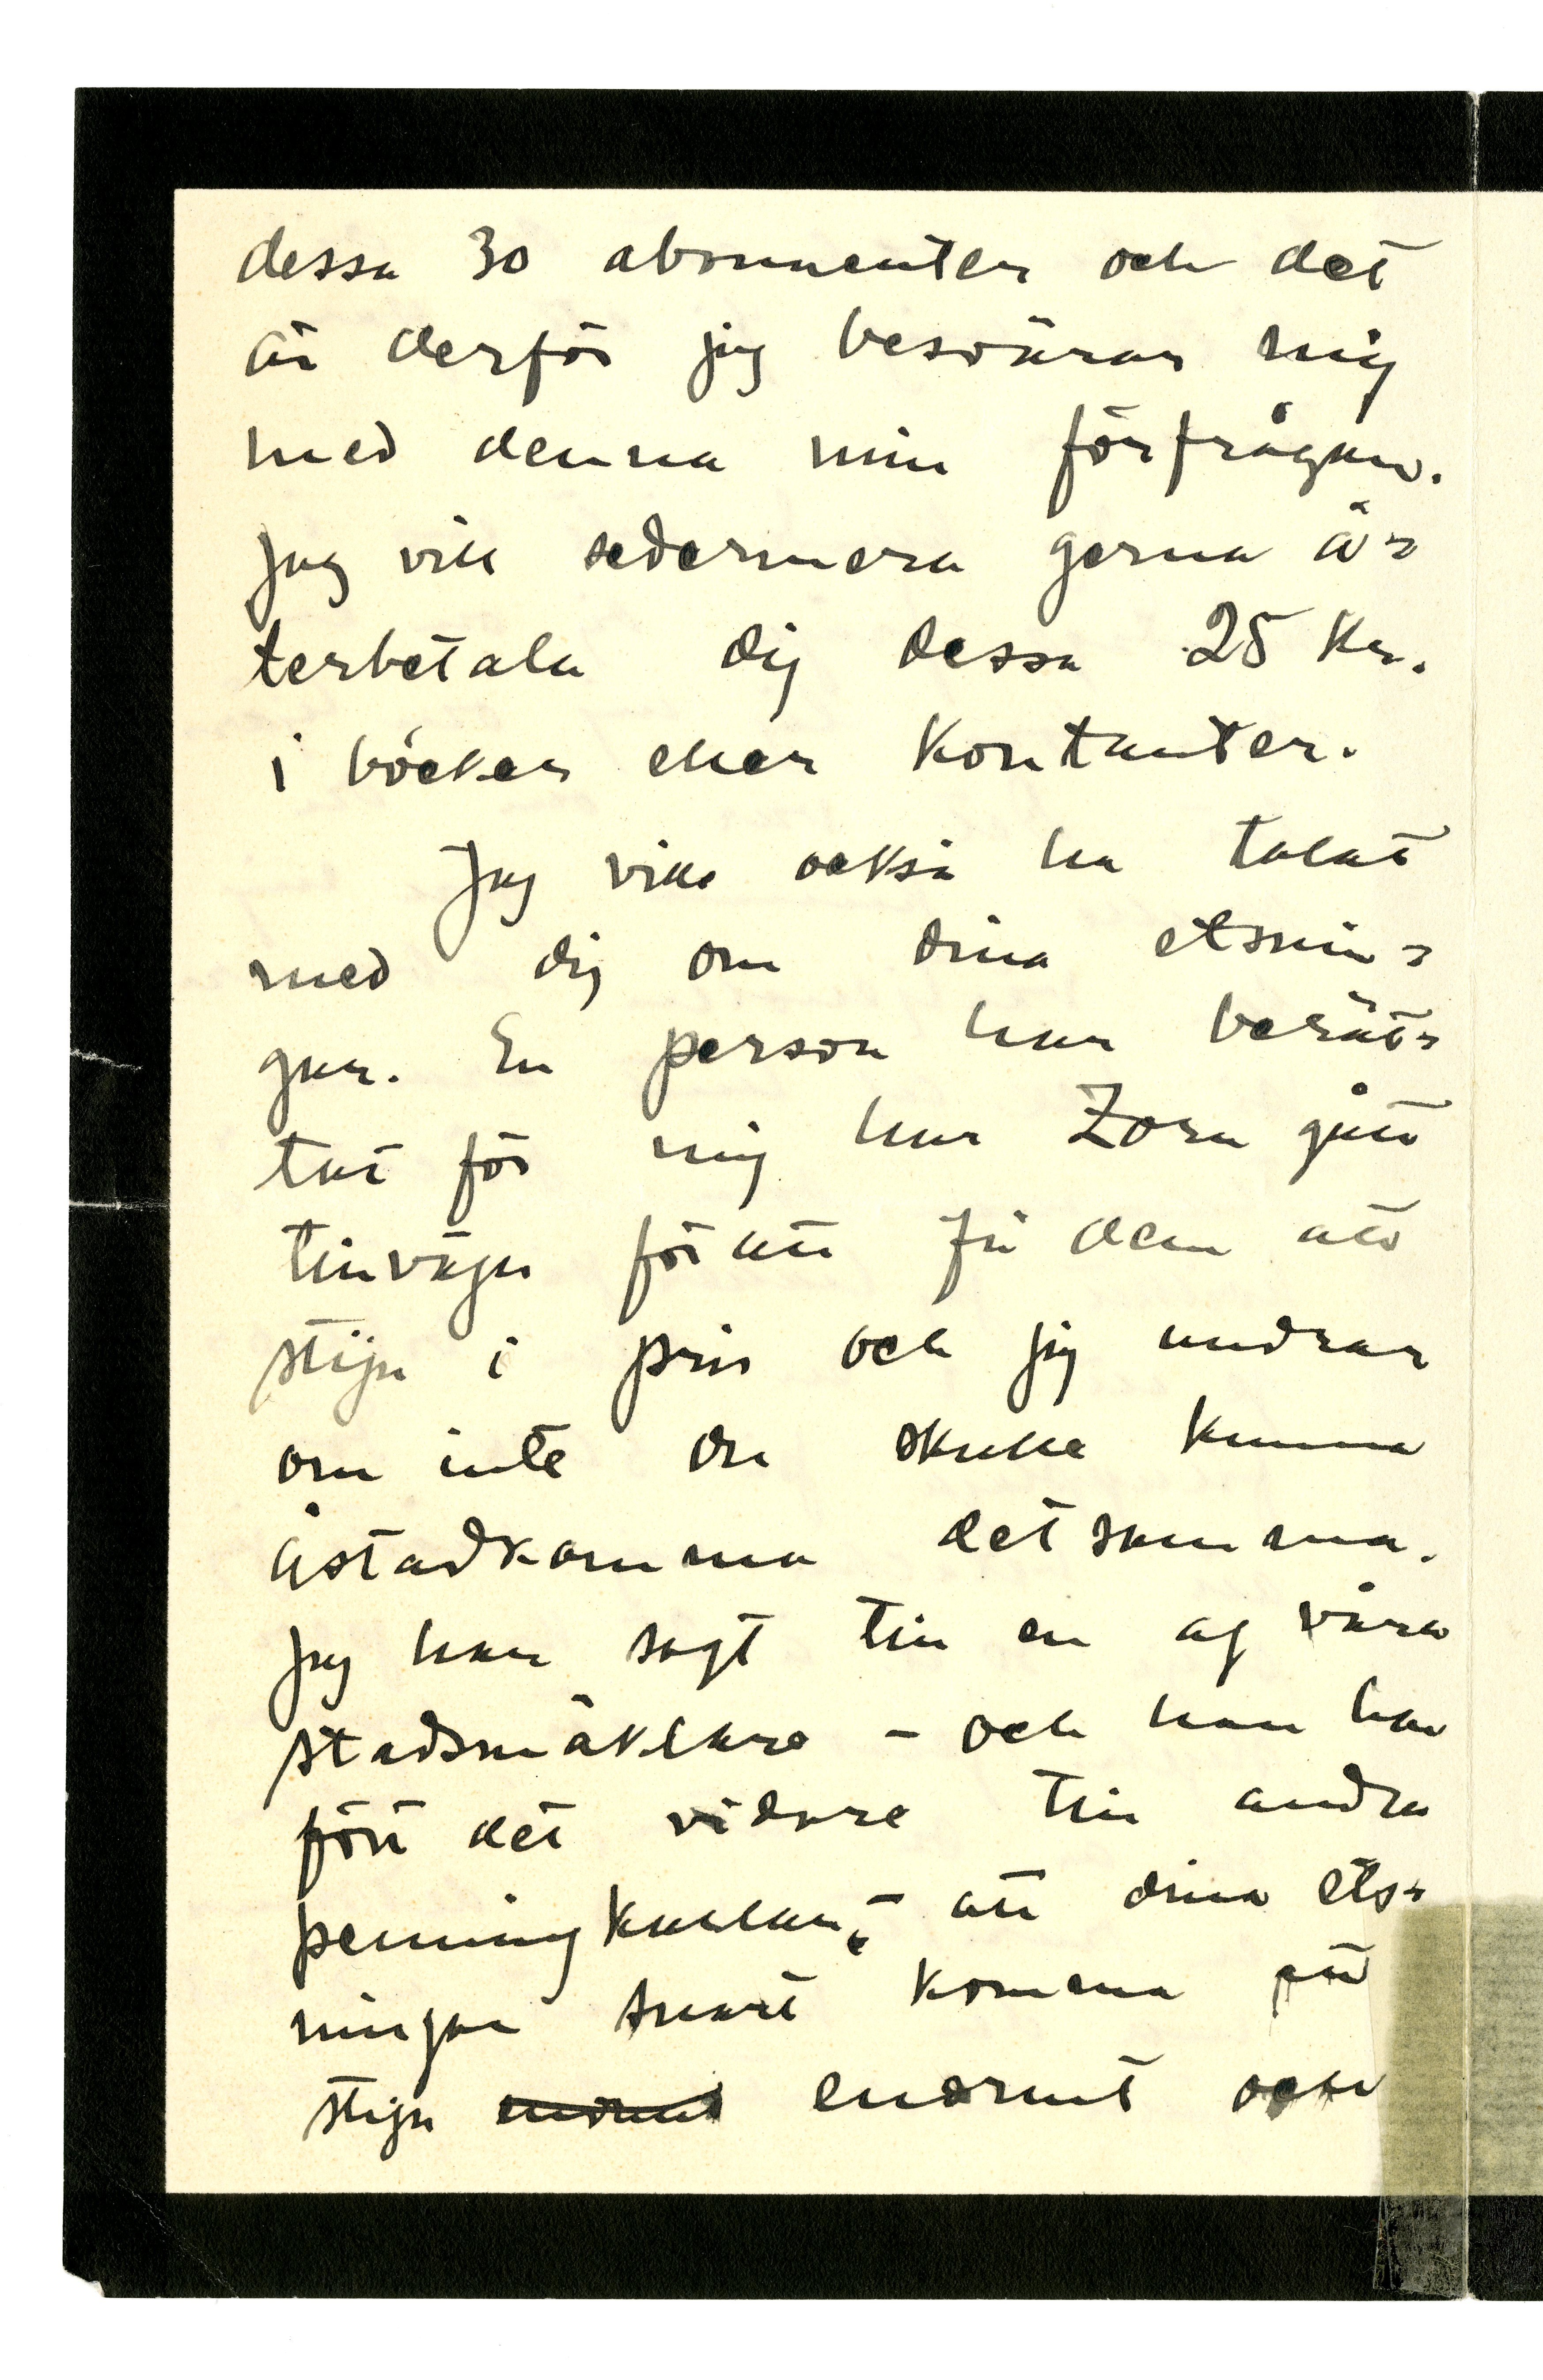 dessa 30 abonnenter och det
är derför jag besvärar mig
med denna min förfrågan.
Jag vill sedermera gerna å=
terbetala dig dessa 25 Kr.
i böcker eller kontanter.
Jag ville också ha talat
med dig om dina etsnin=
gar. En person har berät=
tat för mig hur Zorn gått
tillväga för att få dem att
stiga i pris och jag undrar
om inte du skulle kunna
åstadkomma detsamma.
Jag har sagt till en af våra
stadsmäklare – och han har
fört det vidare till andra
penningkarlar, – att dina ets=
ningar snart komma att
stiga enormt enormt och